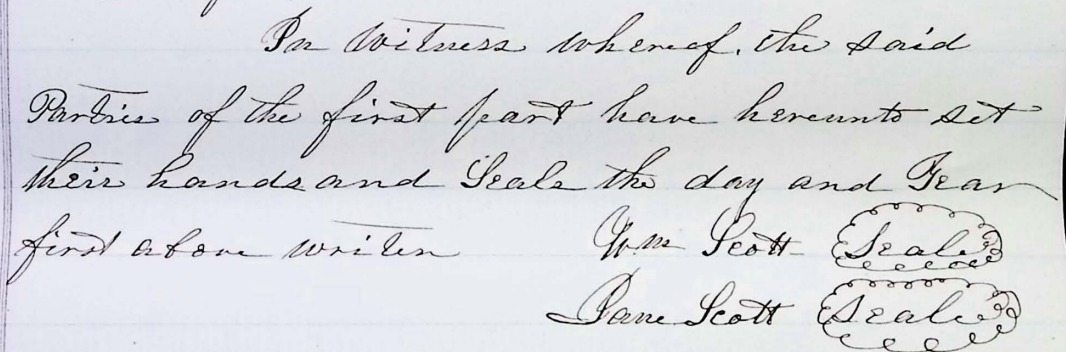 In Witness whereof, the said
Parties of the first part have hereunto set
their hands and Seals the day and Year
first above writen Wm Scott Seal
Jane Scott Seal